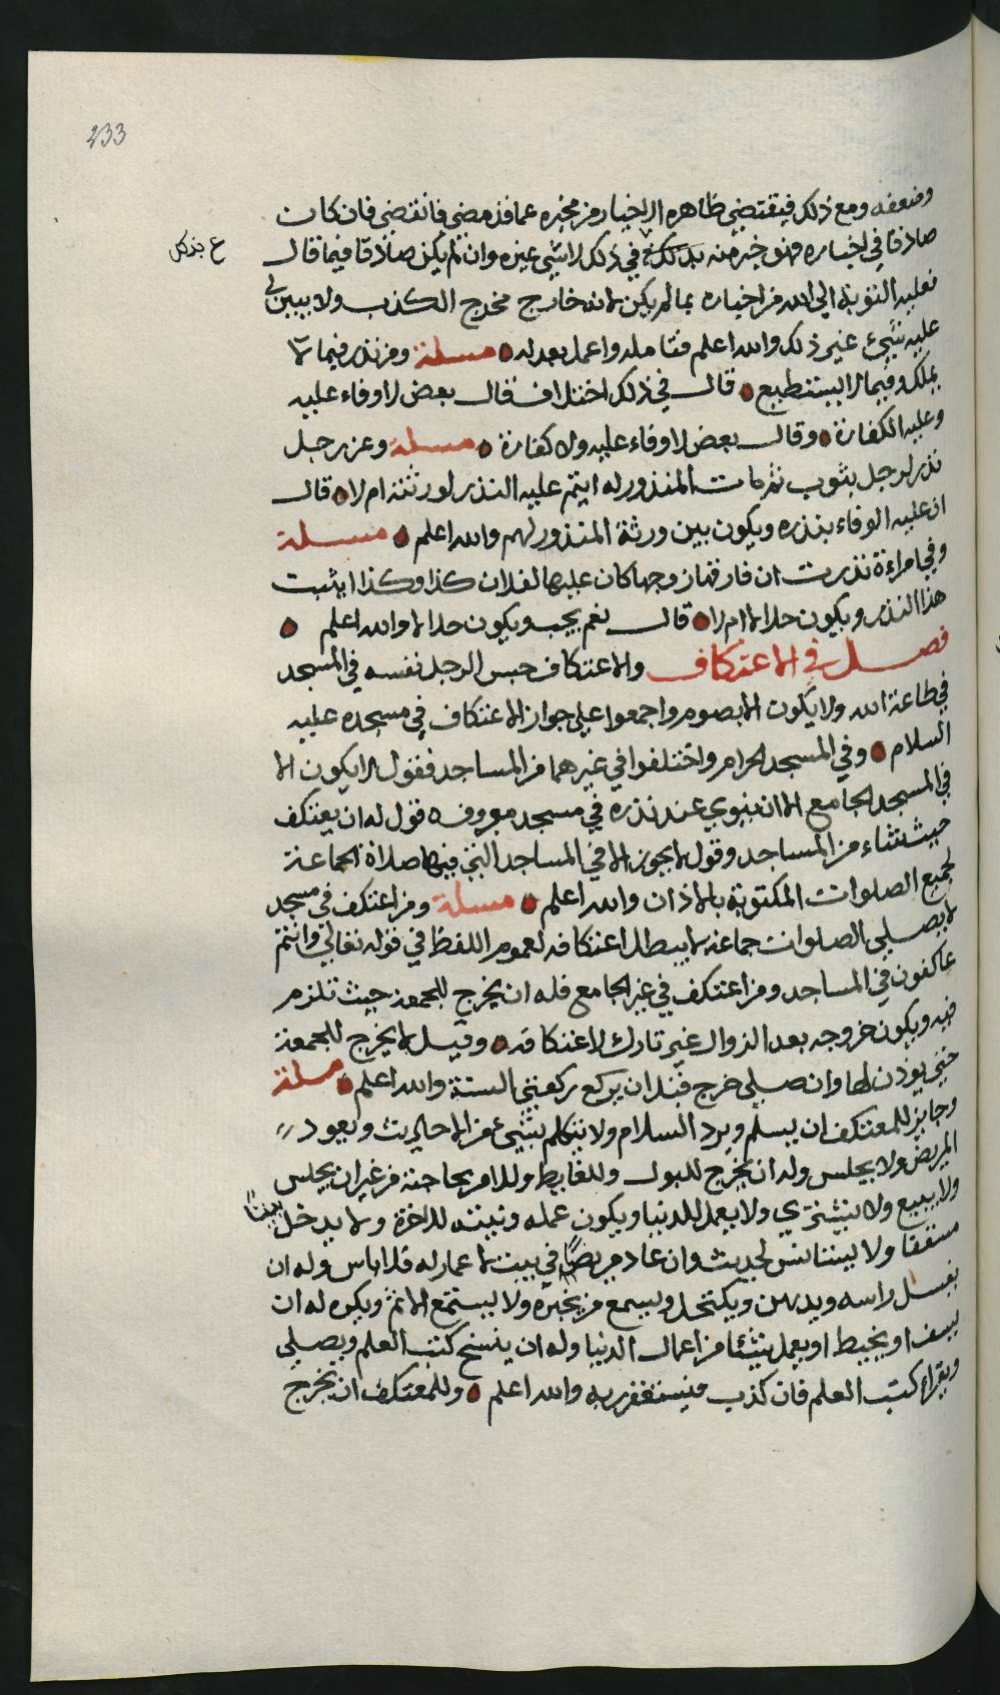 233
ومنعفه ومع ذلك فيقتضي ظاهره الإخبار من مخبره عما قد مضي فانقضي فان كان
صادقا في اخباره فهو خبر منه بذلك في ذلك لا شي غيره وان لم يكن صادقا فيما قال
ع بذلك
فعليه التوبة الي الله من اخباره بما لم يكن لانه خارج مخرج الكذب ولا يبين لي
عليه شيء غير ذلك والله اعلم فتامله واعمل بعدله مسئلة ومن نذر فيما لا
يملك وفيما لا يستطيع قال في ذلك اختلاف فقال بعض لا وفاء عليه
وعليه الكفارة وقال بعض لا وفاء عليه ولا كفارة مسئلة وعن رجل
نذر لرجل بثوب ثم مات المنذور له ايتم عليه النذر لورثته ام لا قال
ان عليه الوفاء بنذره ويكون بين ورثة المنذور لهم والله اعلم مسئلة
وفي امراءة نذرت ان فارقها زوجها كان عليها لفلان كذا وكذا ايثبت
هذا النذر ويكون حلالا ام لا قال نعم يجب ويكون حلالا والله اعلم
فصل في الاعتكاف والاعتكاف حبس الرجل نفسه في المسجد
في طاعة الله ولا يكون الا بصوم واجمعوا علي جواز الاعتكاف في مسجده عليه
السلام وفي المسجد الحرام واختلفوا في غيرهما من المساجد فقول لا يكون الا
في المسجد الجامع الا ان ينوي عند نذره في مسجد معروف وقول له ان يعتكف
حيث شاء من المساجد وقول لا يجوز الا في المساجد التي فيها صلاة الجماعة
لجميع الصلوات المكتوبة بالاذان والله اعلم مسئلة ومن اعتكف في مسجد
لا يصلي الصلوات جماعة لا يبطل اعتكافه لعموم اللفظ في قوله تعالي وانتم
عاكفون في المساجد ومن اعتكف في غير الجامع فله ان يخرج للجمعة حيث تلزم
فيه ويكون خروجه بعد الزوال غير تارك لاعتكافه وقيل لا يخرج للجمعة
حتي يوذن لها وان صلي خرج قبل ان يركع ركعتي السنة والله اعلم مسئلة
وجايز للمعتكف ان يسلم ويرد السلام ولا يتكلم بشيء من الاحاديث ويعود
المريض ولا يجلس وله ان يخرج للبول وللغايط وللامر بحاجته من غير ان يجلس
ولا يبيع ولا يشتري ولا يعمل للدنيا ويكون عمله ونيته للاخرة ولا يدخل بيتا
مسقفا ولا يستانس لحديث وان عاد مريضا في بيت لا عمار له فلا باس وله ان
يغسل راسه ويدهن ويكتحل ويسمع من يخبره ولا يستمع الاثم ويكره له ان
يسف او يخيط او يعمل شيئا من اعمال الدنيا وله ان ينسخ كتب العلم ويصلي
ويقراء كتب العلم فان كذب فيستغفر ربه والله اعلم وللمعتكف ان يخرج